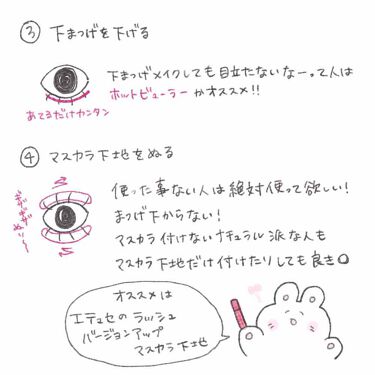 ③ 下まつげを下げる
下まつげメイクしても目立たないなーって人は
ホットビューラーがオススメ!!
あてるだけカンタン
④ マスカラ下地をぬる
使った事ない人は絶対使って欲しい!
まつげ下がらない!
マスカラ付けないナチュラル派な人も
マスカラ下地だけ付けたりしても良き◎
オススメは
エテュセの ラッシュ
バージョンアップ
マスカラ下地